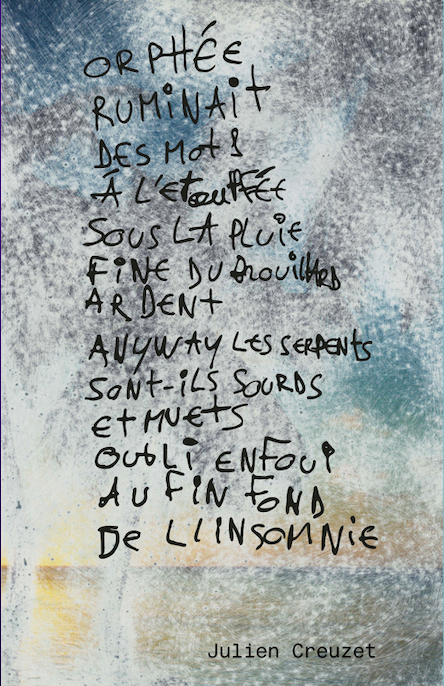 ORPHÉE
RUMINAIT
DES MOTS
À L'ETOUFFÉE
SOUS LA PLUIE
FINE DU BROUILLARD
ARDENT
ANYWAY LES SERPENTS
SONT-ILS SOURDS
ET MUETS
OUBLI ENFOUI
AU FIN FOND
DE L'INSOMNIE
Julien Creuzet